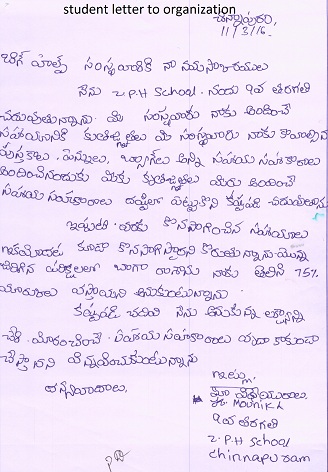 student letter to organization
చిన్నాపురం,
11/3/16.
బిగ్ హెల్ప్ సంస్థ వారికి నా నమస్కారములు
నేను Z.P.H School. నందు 9వ తరగతి
చదువుతున్నాను. మీ సంస్థవారు నాకు అందించే
సహాయానికి కృతజ్ఞతలు మీ సంస్థవారు నాకు కావాల్సిన
పుస్తకాలు, పెన్నులు, అన్ని సహాయ సహకారాలు
అందించినందుకు మీకు కృతజ్ఞతలు మీరు అందించే
సహాయ సహకారాలు పెట్టుకొని కష్టపడి చదువుతాను.
ఇప్పటి వరకు కొనసాగించిన సహాయాలు
ఇకమీదట కూడా కొనసాగిస్తారని కోరుతున్నాను. మొన్న
జరిగిన పరీక్షలలో బాగా రాశాను నాకు 75%
మార్కులు వస్తాయని అనుకుంటున్నాను.
కష్టపడి చదివి నేను అనుకున్న లక్ష్యాన్ని
సహాయ సహకారాలు వృధా కాకుండా
చేస్తానని విన్నవించుకుంటున్నాను
ధన్యవాదాలు,
ఇట్లు,
మీ విధేయురాలు,
MOUNIKA
9వ తరగతి
Z.P.H School
Chinnapuram